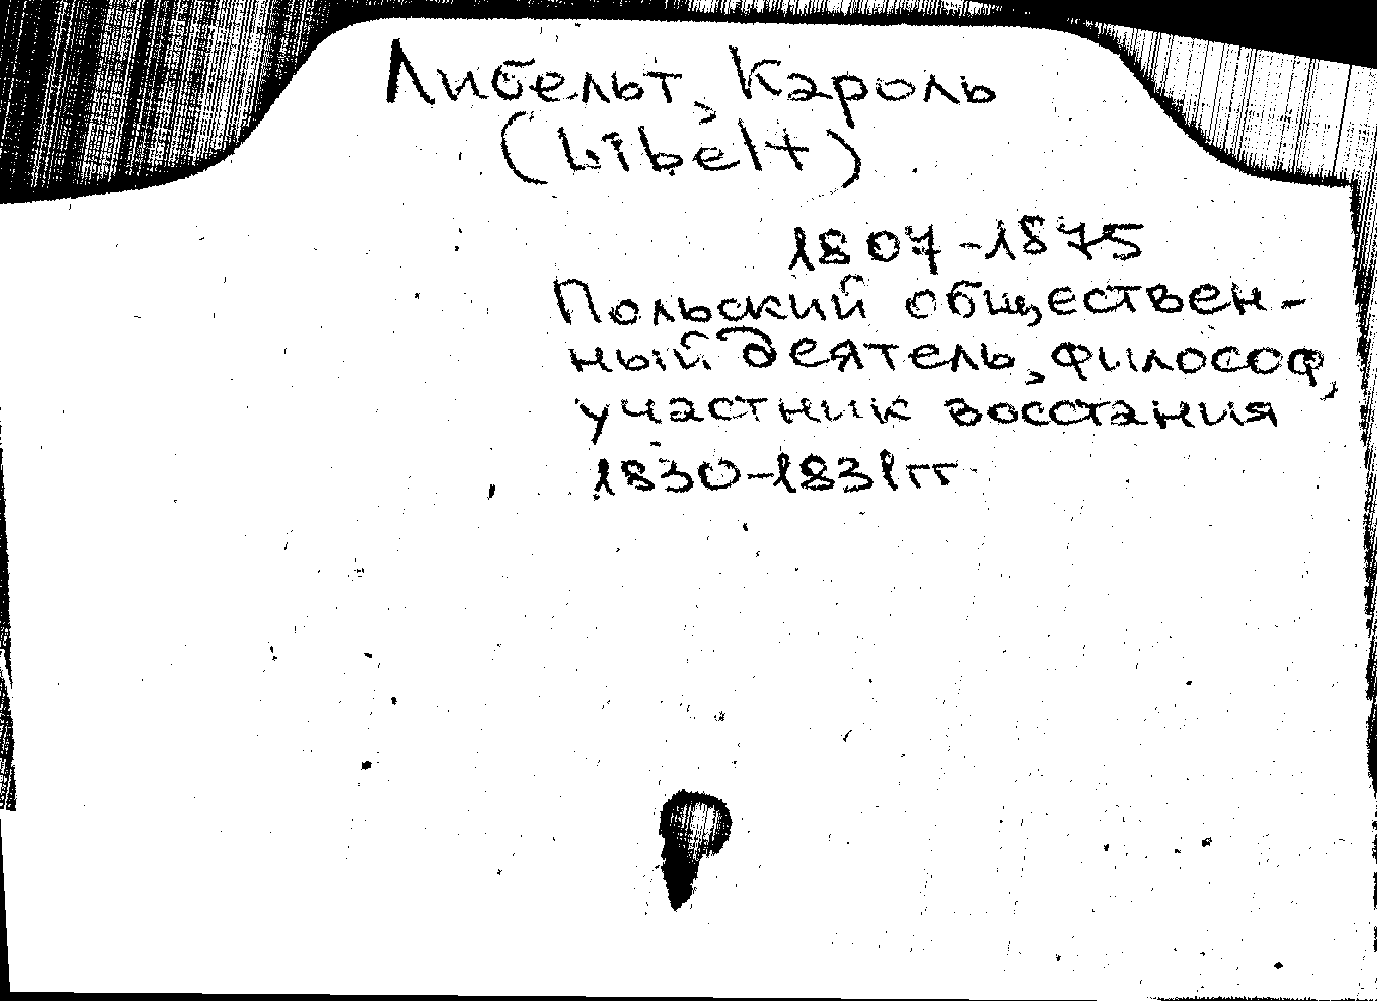 Либельт, Кароль
(Libelt)
1807-1875
Польский обществен-
ный деятель, философ,
участник восстания
1830-1831гг